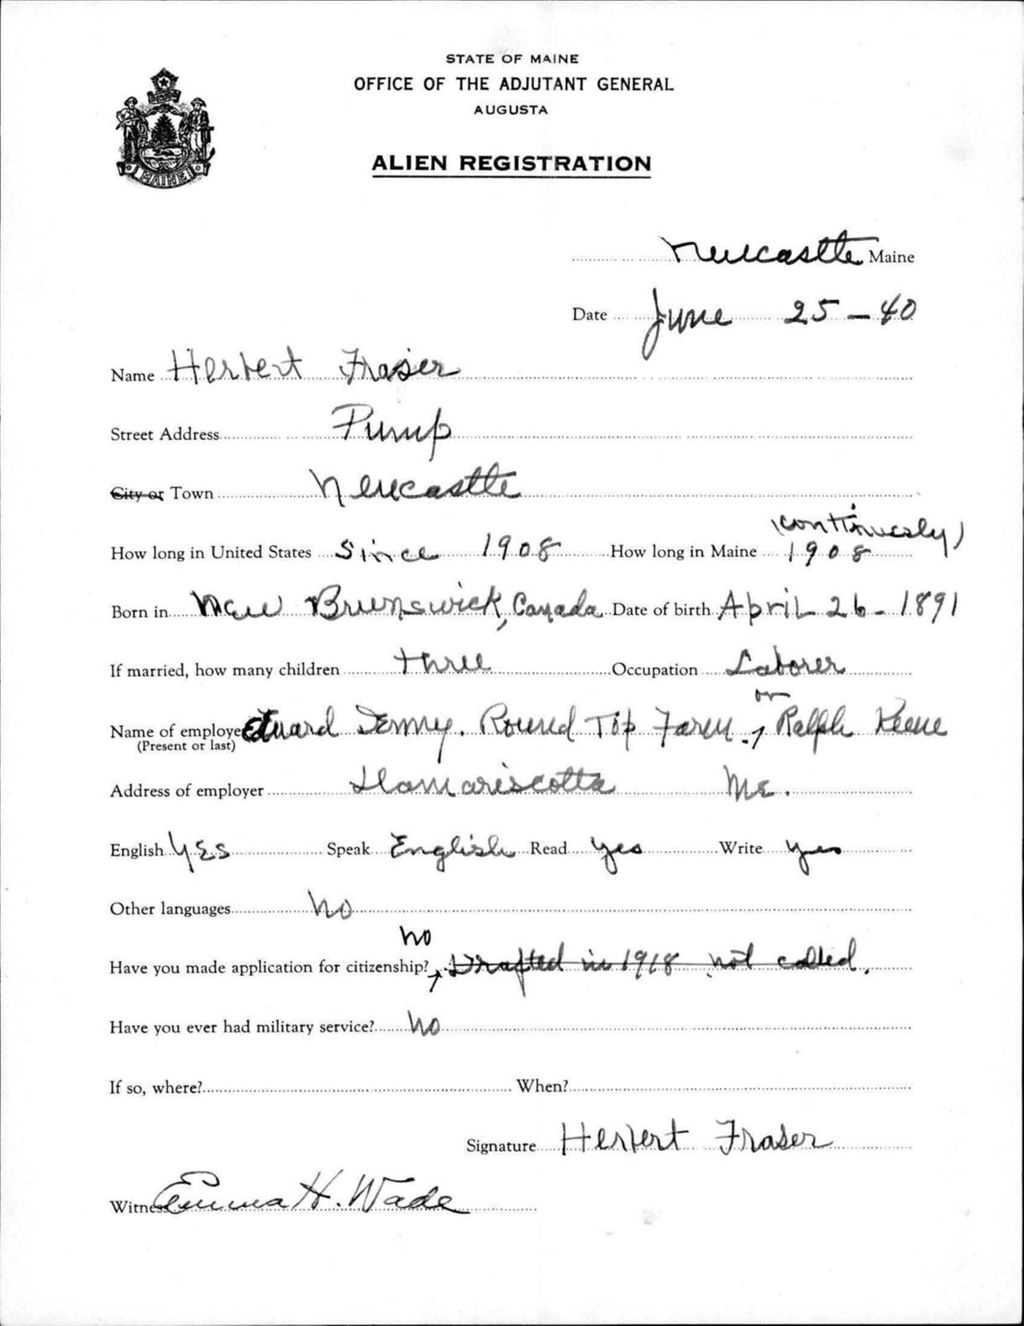 STATE OF MAINE
OFFICE OF THE ADJUTANT GENERAL
AUGUSTA
MAINE
ALIEN REGISTRATION
Newcastle Maine
Date June 25-40
Name Herbert Fraser
Street Address Pump
City or Town Newcastle
(continuesly)
How long in United States Since 1908 How long in Maine 1908
Born in New Brunswick, Canada Date of birth April 26-1891
If married, how many children three Occupation Laborer
or
Name of employer Edward Denny. Round Top Farm - Ralph Keene
(Present or last)
Address of employer Damariscotta Me.
English Yes Speak English Read Yes Write yes
Other languages No
no
Have you made application for citizenship? Drafted in 1918 not called.
Have you ever had military service? No
If so, where? When?
Signature Herbert Fraser
Witness Emma H. Wade